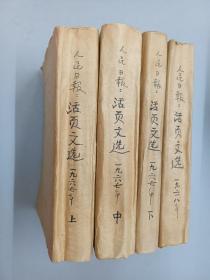 人民日报:
活页文选
一九六七年
上
人民日报:
活页文选
一九六七年
中
人民日报:
活页文选
一九六七年
下
人民日报:
活页文选
一九六八年